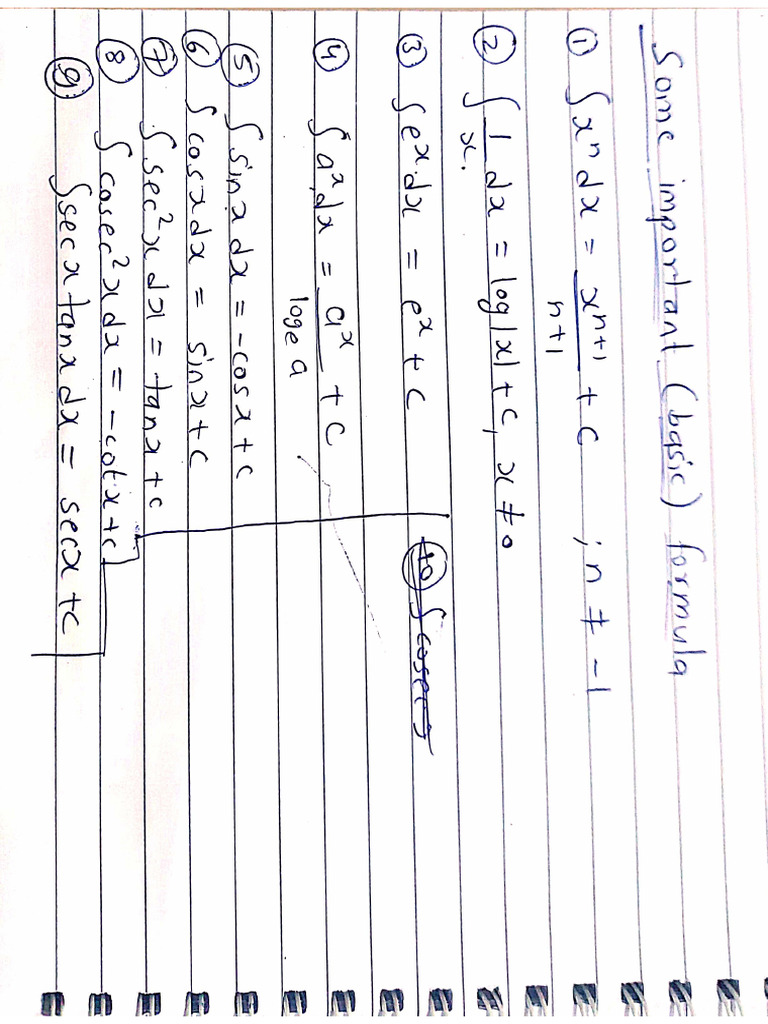 Some important (basic) formula
① ∫xⁿdx = xⁿ⁺¹/n+1 + c ; n ≠ -1
② ∫1/x. dx = log|x| + c, x ≠ 0
③ ∫eˣ.dx = eˣ + c
④ ∫aˣ.dx = aˣ/logₑa + c
⑤ ∫sinx dx = -cosx + c
⑥ ∫cosx dx = sinx + c
⑦ ∫sec²x dx = tanx + c
⑧ ∫cosec²x dx = -cotx + c
⑨ ∫secx tanx dx = secx + c